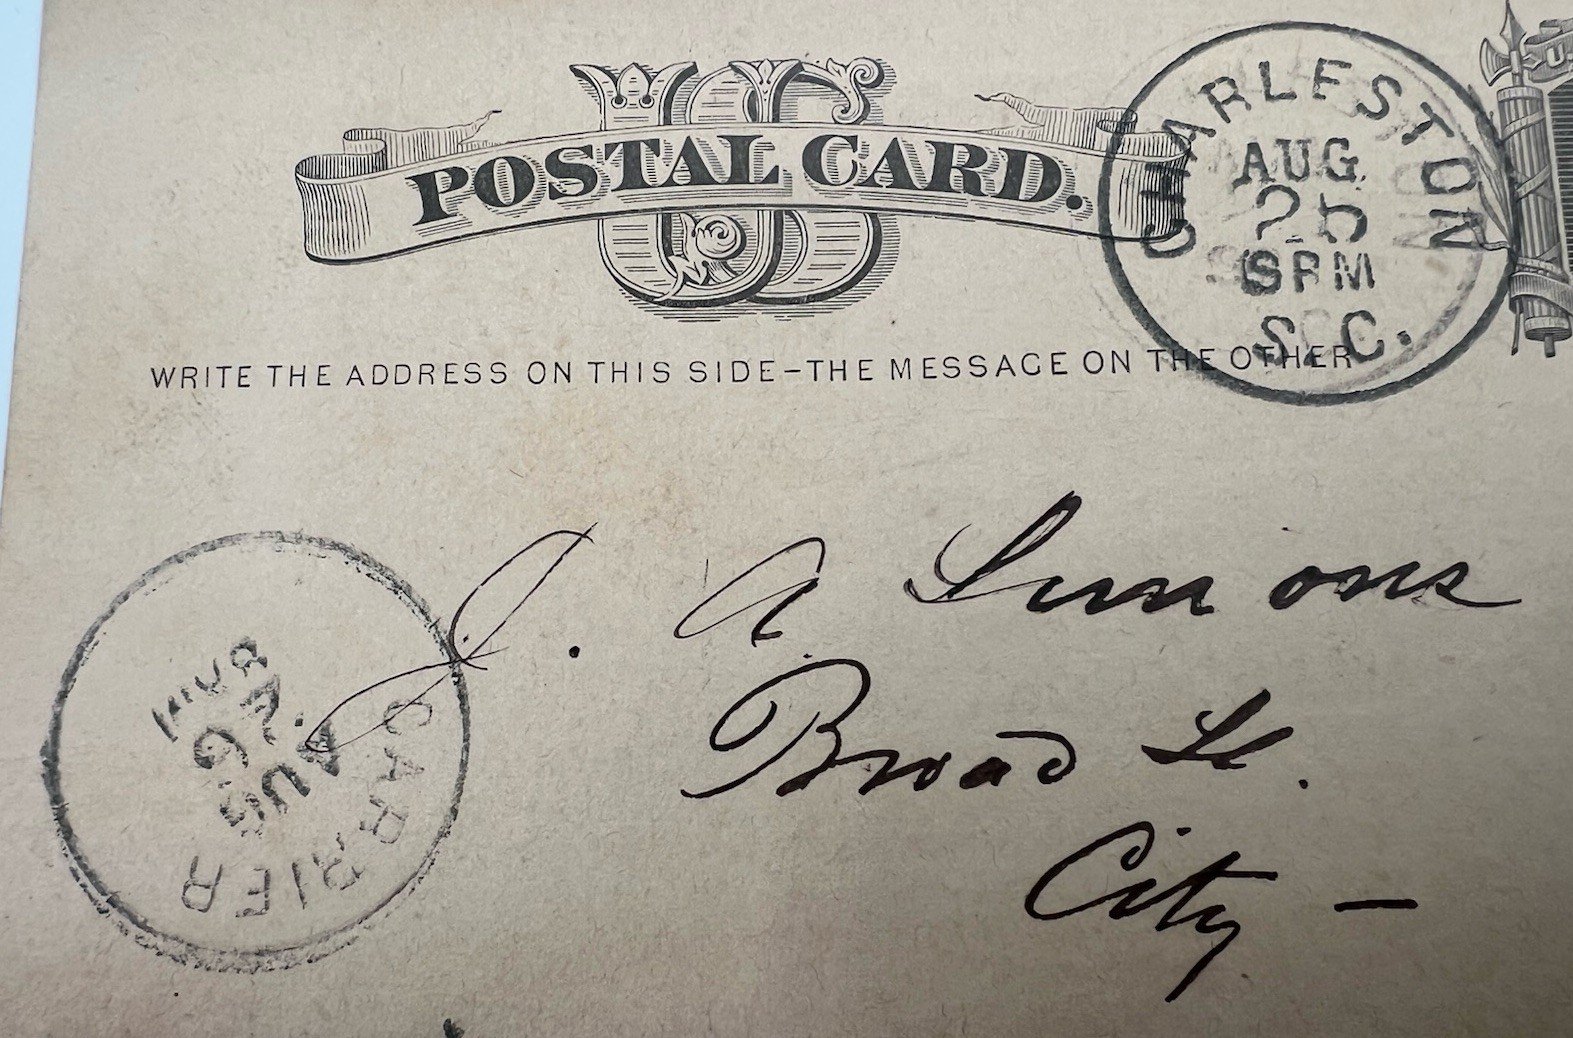 US
POSTAL CARD.
CHARLESTON
AUG
25
PM
S.C.
WRITE THE ADDRESS ON THIS SIDE-THE MESSAGE ON THE OTHER
J. A Simons
Broad St.
City -
CARRIER
AUG